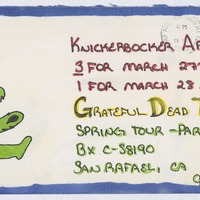 PM
KNICKERBOCKER A
3 FOR MARCH 27
1 FOR MARCH 28
GRATEFUL DEAD T
SPRING TOUR - PAR
BX C-S8190
SAN RAFAEL, CA